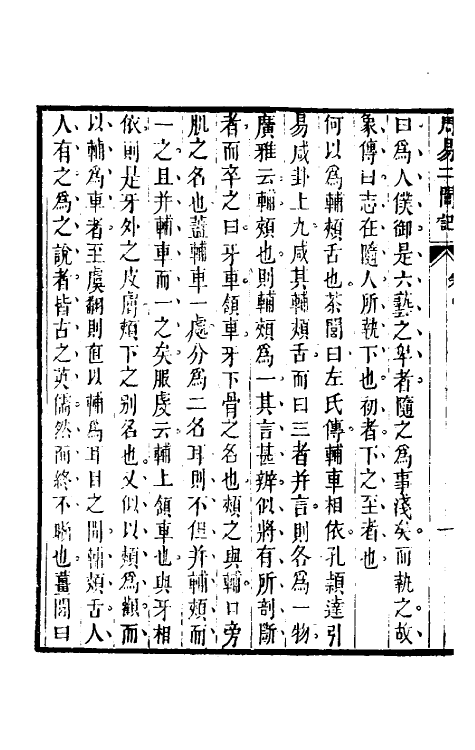 周易二閭記
曰爲人僕御是六藝之卑者隨之爲事淺矣而執之故
象傳曰志在隨人所執下也初者下之至者也
何以爲輔頰舌也茶閭曰左氏傳輔車相依孔頴達引
易咸卦上九咸其輔頰舌而曰三者並言則各爲一物
廣雅云輔頰也則輔頰爲一其言甚辨似將有所剖斷
者而卒之曰牙車頷車牙下骨之名也頰之與輔口旁
肌之名也葢輔車一處分爲二名耳則不但并輔頰而
一之且并輔車而一之矣服虔云輔上頷車也與牙相
依則是牙外之皮膚頰下之别名也又似以頰爲顴而
以輔爲車者至虞翻則直以輔爲耳目之間輔頰舌人
人有之爲之說者皆古之英儒然而終不晰也薑閭曰